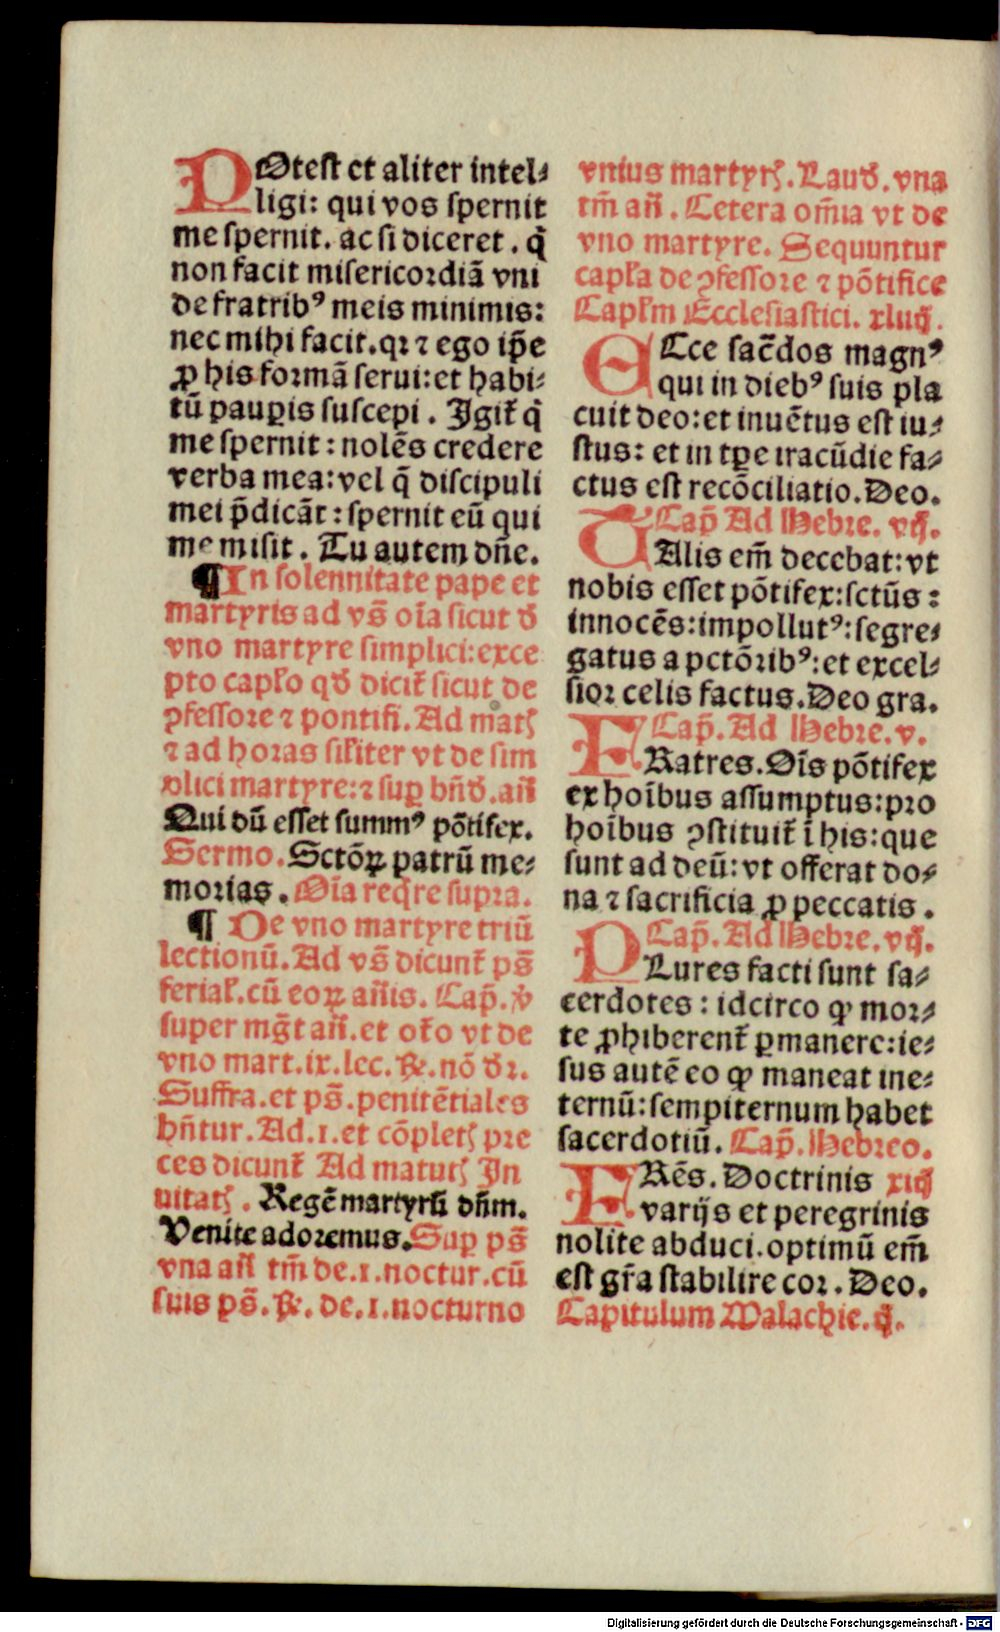 POtest et aliter intel⸗
ligi: qui vos spernit
me spernit. ac si diceret. q̄
non facit misericordiā vni
de fratribꝰ meis minimis:
nec mihi facit. qꝛ ⁊ ego ip̄e
ꝓ his formā serui: et habi⸗
tū pauꝑis suscepi. Igit̄ q̄
me spernit: nolēs credere
verba mea: vel q̄ discipuli
mei p̄dicāt: spernit eū qui
me misit. Tu autem dn̄e.
¶ In solennitate pape et
martyris ad vs̄ oīa sicut đ
vno martyre simplici: exce
pto capło qđ dicit̄ sicut de
ꝯfessore ⁊ pontifi. Ad matꝭ
⁊ ad horas sił̄iter vt de sim
plici martyre: ⁊ suꝑ bn̄đ. añ
Qui dū esset summꝰ pōtifex.
Sermo. Sctōꝝ patrū me⸗
morias. Oīa reqr̄e supra.
¶ De vno martyre triū
lectionū. Ad vs̄ dicunt̄ ps̄
feriał. cū eoꝝ añis. Cap̄. ꝟ
super mḡt añ. et or̄o vt de
vno mart. ix. lec. ℞. nō đꝛ.
Suffra. et ps̄. penitētiales
hn̄tur. Ad. i. et cōpletꝭ pre
ces dicunt̄ Ad matutꝭ In
uitatꝭ. Regē martyrū dn̄m.
Venite adoremus. Suꝑ ps̄
vna añ tm̄ de. i. noctur. cū
suis ps̄. ℞. de. i. nocturno
vnius martyrꝭ. Lauđ. vna
tm̄ añ. Cetera om̄ia vt de
vno martyre. Sequuntur
capła de ꝯfessore ⁊ pōtifice
Capłm Ecclesiastici. xliiij.
ECce sac̄dos magnꝰ
qui in diebꝰ suis pla
cuit deo: et inuētus est iu⸗
stus: et in tꝑe iracūdie fa⸗
ctus est recōciliatio. Deo.
Cap̄ Ad Hebre. vij.
TAlis em̄ decebat: vt
nobis esset pōtifex: sctūs:
innocēs: impollutꝰ: segre⸗
gatus a pctōribꝰ: et excel⸗
sior celis factus. Deo gra.
Cap̄. Ad Hebre. v.
FRatres. Oīs pōtifex
ex hoībus assumptus: pro
hoībus ꝯstituit̄ ī his: que
sunt ad deū: vt offerat do⸗
na ⁊ sacrificia ꝓ peccatis.
Cap̄. Ad Hebre. vij.
PLures facti sunt sa⸗
cerdotes: idcirco ꝙ mor⸗
te ꝓhiberent̄ ꝑmanere: ie⸗
sus autē eo ꝙ maneat ine⸗
ternū: sempiternum habet
sacerdotiū. Cap̄. Hebreo.
FRēs. Doctrinis xiij
varijs et peregrinis
nolite abduci. optimū em̄
est gr̄a stabilire cor. Deo.
Capitulum Malachie. ij.
Digitalisierung gefördert durch die Deutsche Forschungsgemeinschaft - DFG